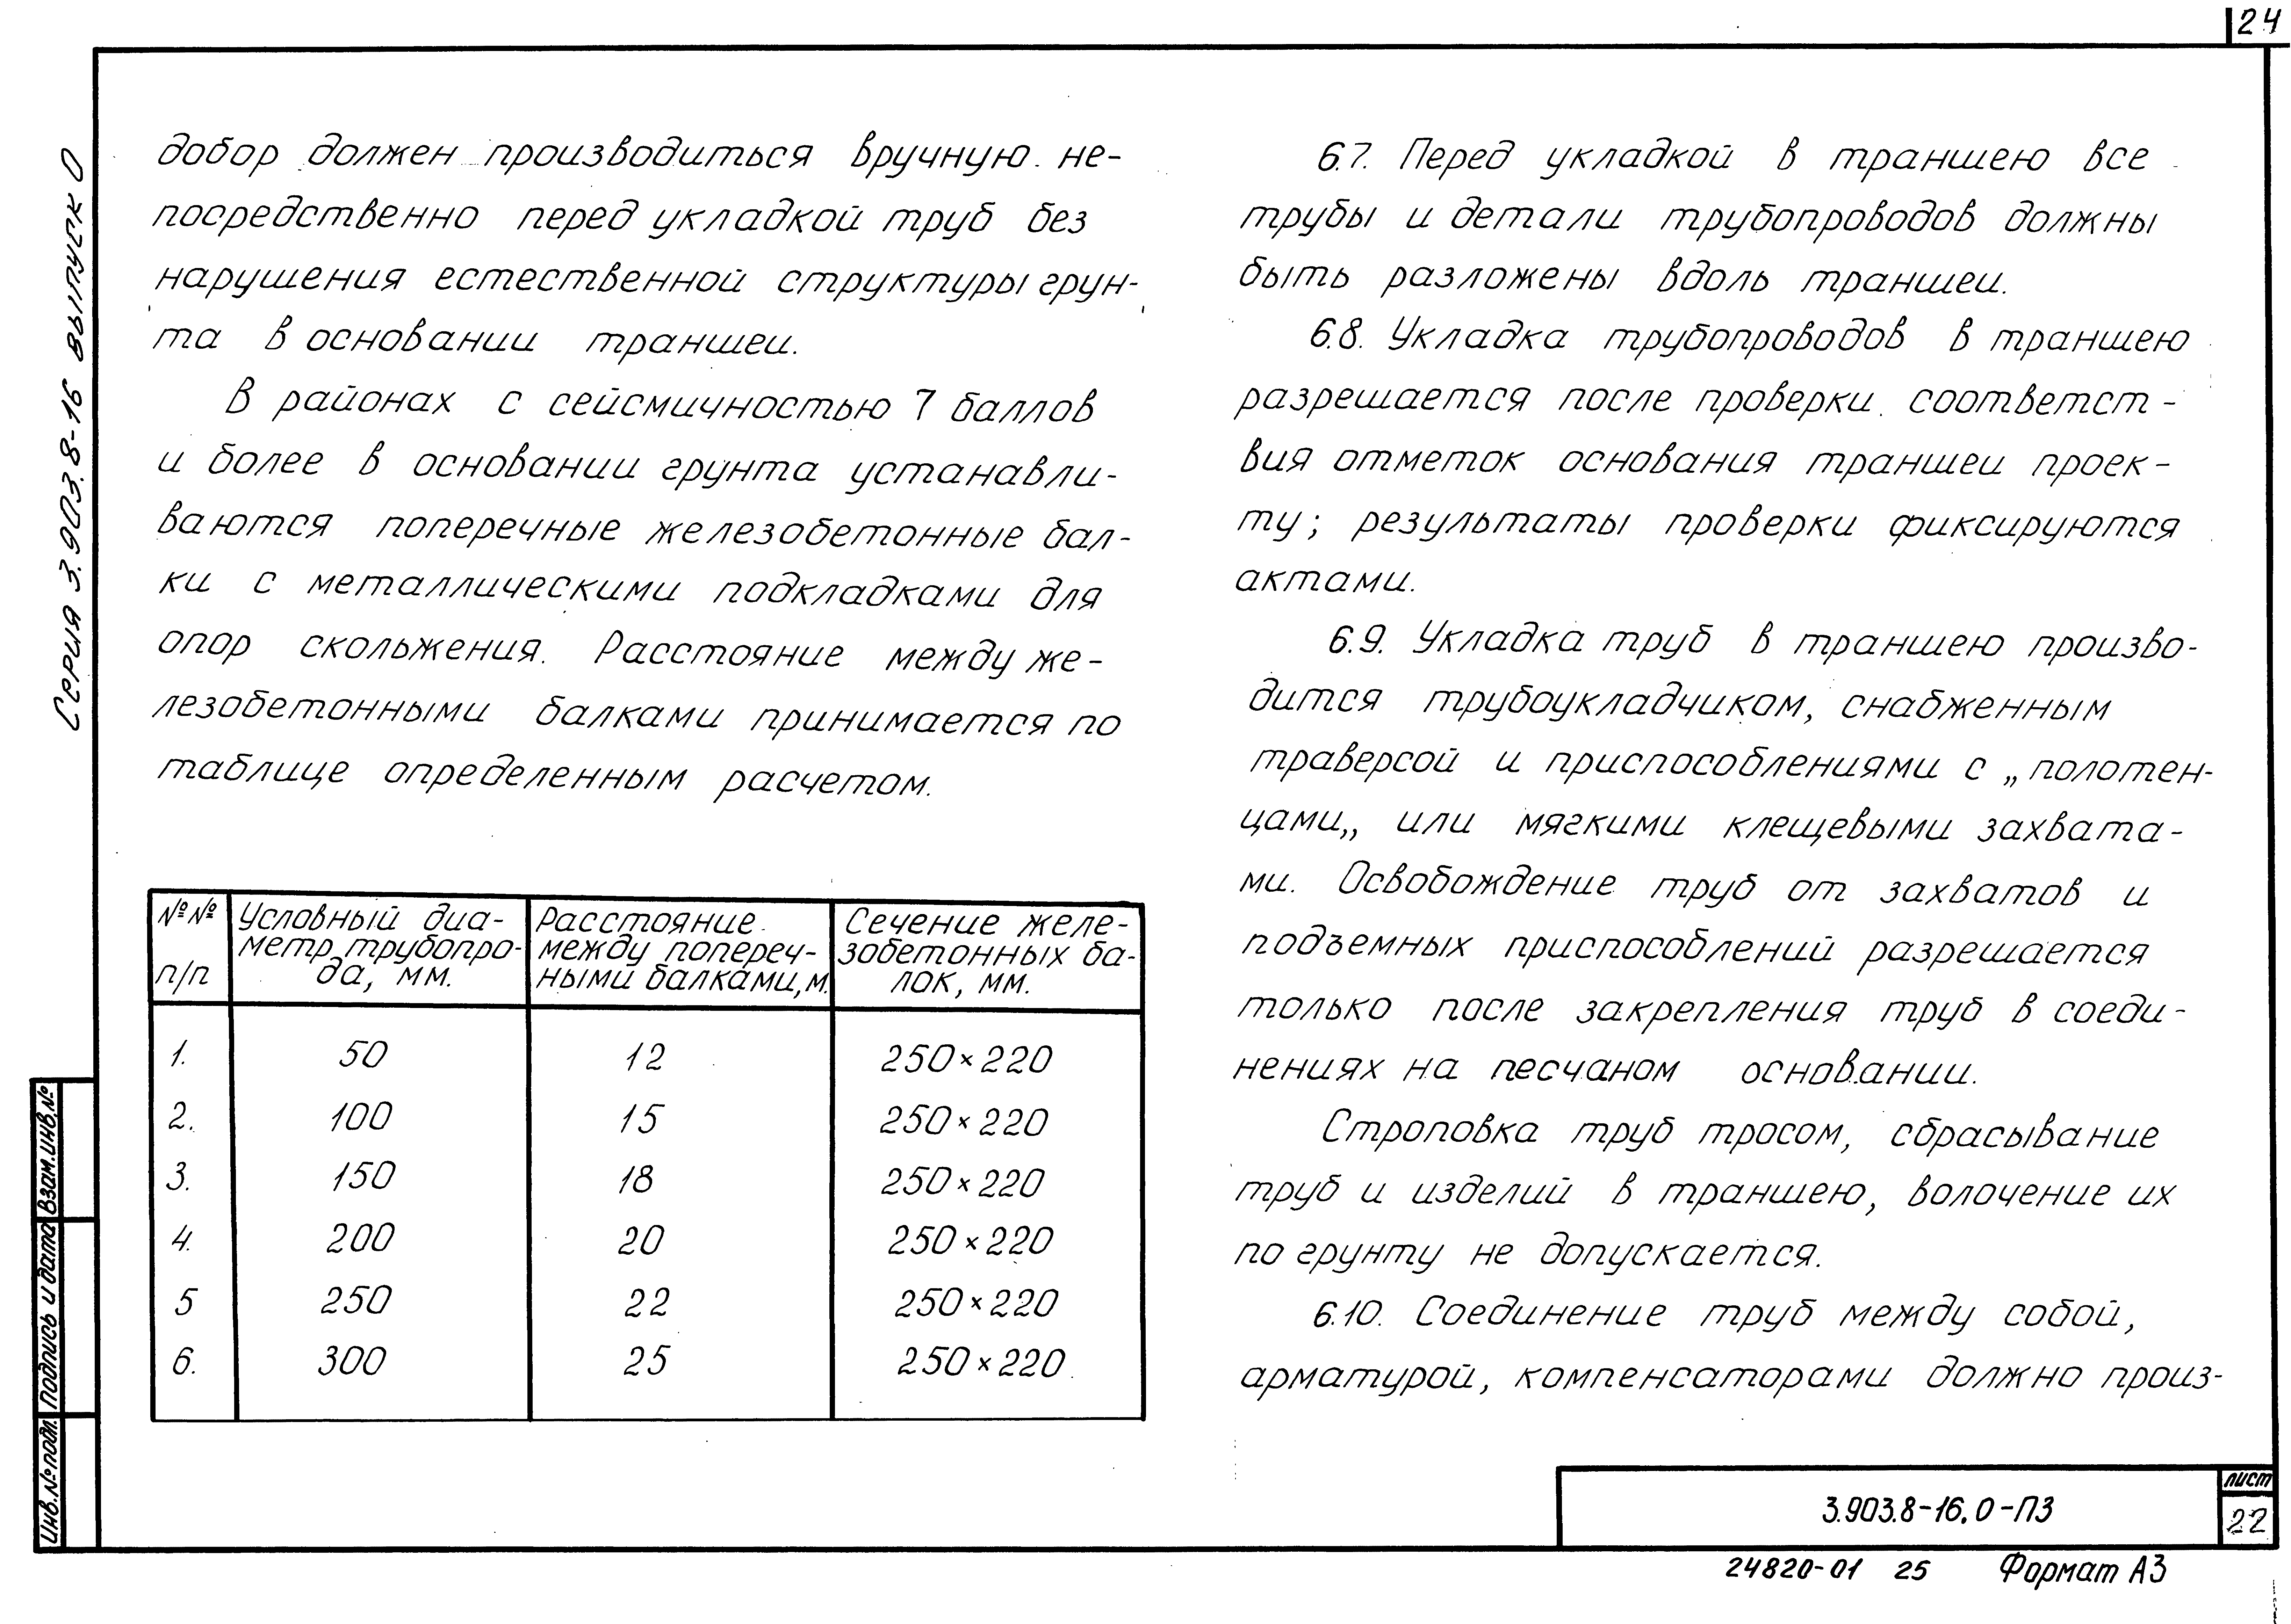 24
Серия 3.903.8-16 выпуск 0
добор должен производиться вручную не-
посредственно перед укладкой труб без
нарушения естественной структуры грун-
та в основании траншеи.
В районах с сейсмичностью 7 баллов
и более в основании грунта устанавли-
ваются поперечные железобетонные бал-
ки с металлическими подкладками для
опор скольжения. Расстояние между же-
лезобетонными балками принимается по
таблице определенным расчетом.
№№ п/п
Условный диа-
метр трубопро-
да, мм.
Расстояние
между попереч-
ными балками, м.
Сечение желе-
зобетонных ба-
лок, мм.
1. 50 12 250×220
2. 100 15 250×220
3. 150 18 250×220
4. 200 20 250×220
5 250 22 250×220
6. 300 25 250×220
6.7. Перед укладкой в траншею все
трубы и детали трубопроводов должны
быть разложены вдоль траншеи.
6.8. Укладка трубопроводов в траншею
разрешается после проверки соответст-
вия отметок основания траншеи проек-
ту; результаты проверки фиксируются
актами.
6.9. Укладка труб в траншею произво-
дится трубоукладчиком, снабженным
траверсой и приспособлениями с „полотен-
цами„ или мягкими клещевыми захвата-
ми. Освобождение труб от захватов и
подъемных приспособлений разрешается
только после закрепления труб в соеди-
нениях на песчаном основании.
Строповка труб тросом, сбрасывание
труб и изделий в траншею, волочение их
по грунту не допускается.
6.10. Соединение труб между собой,
арматурой, компенсаторами должно произ-
Взам.инв.№
Подпись и дата
Инв.№подл.
3.903.8-16.0-ПЗ
лист
22
24820-01 25 Формат А3